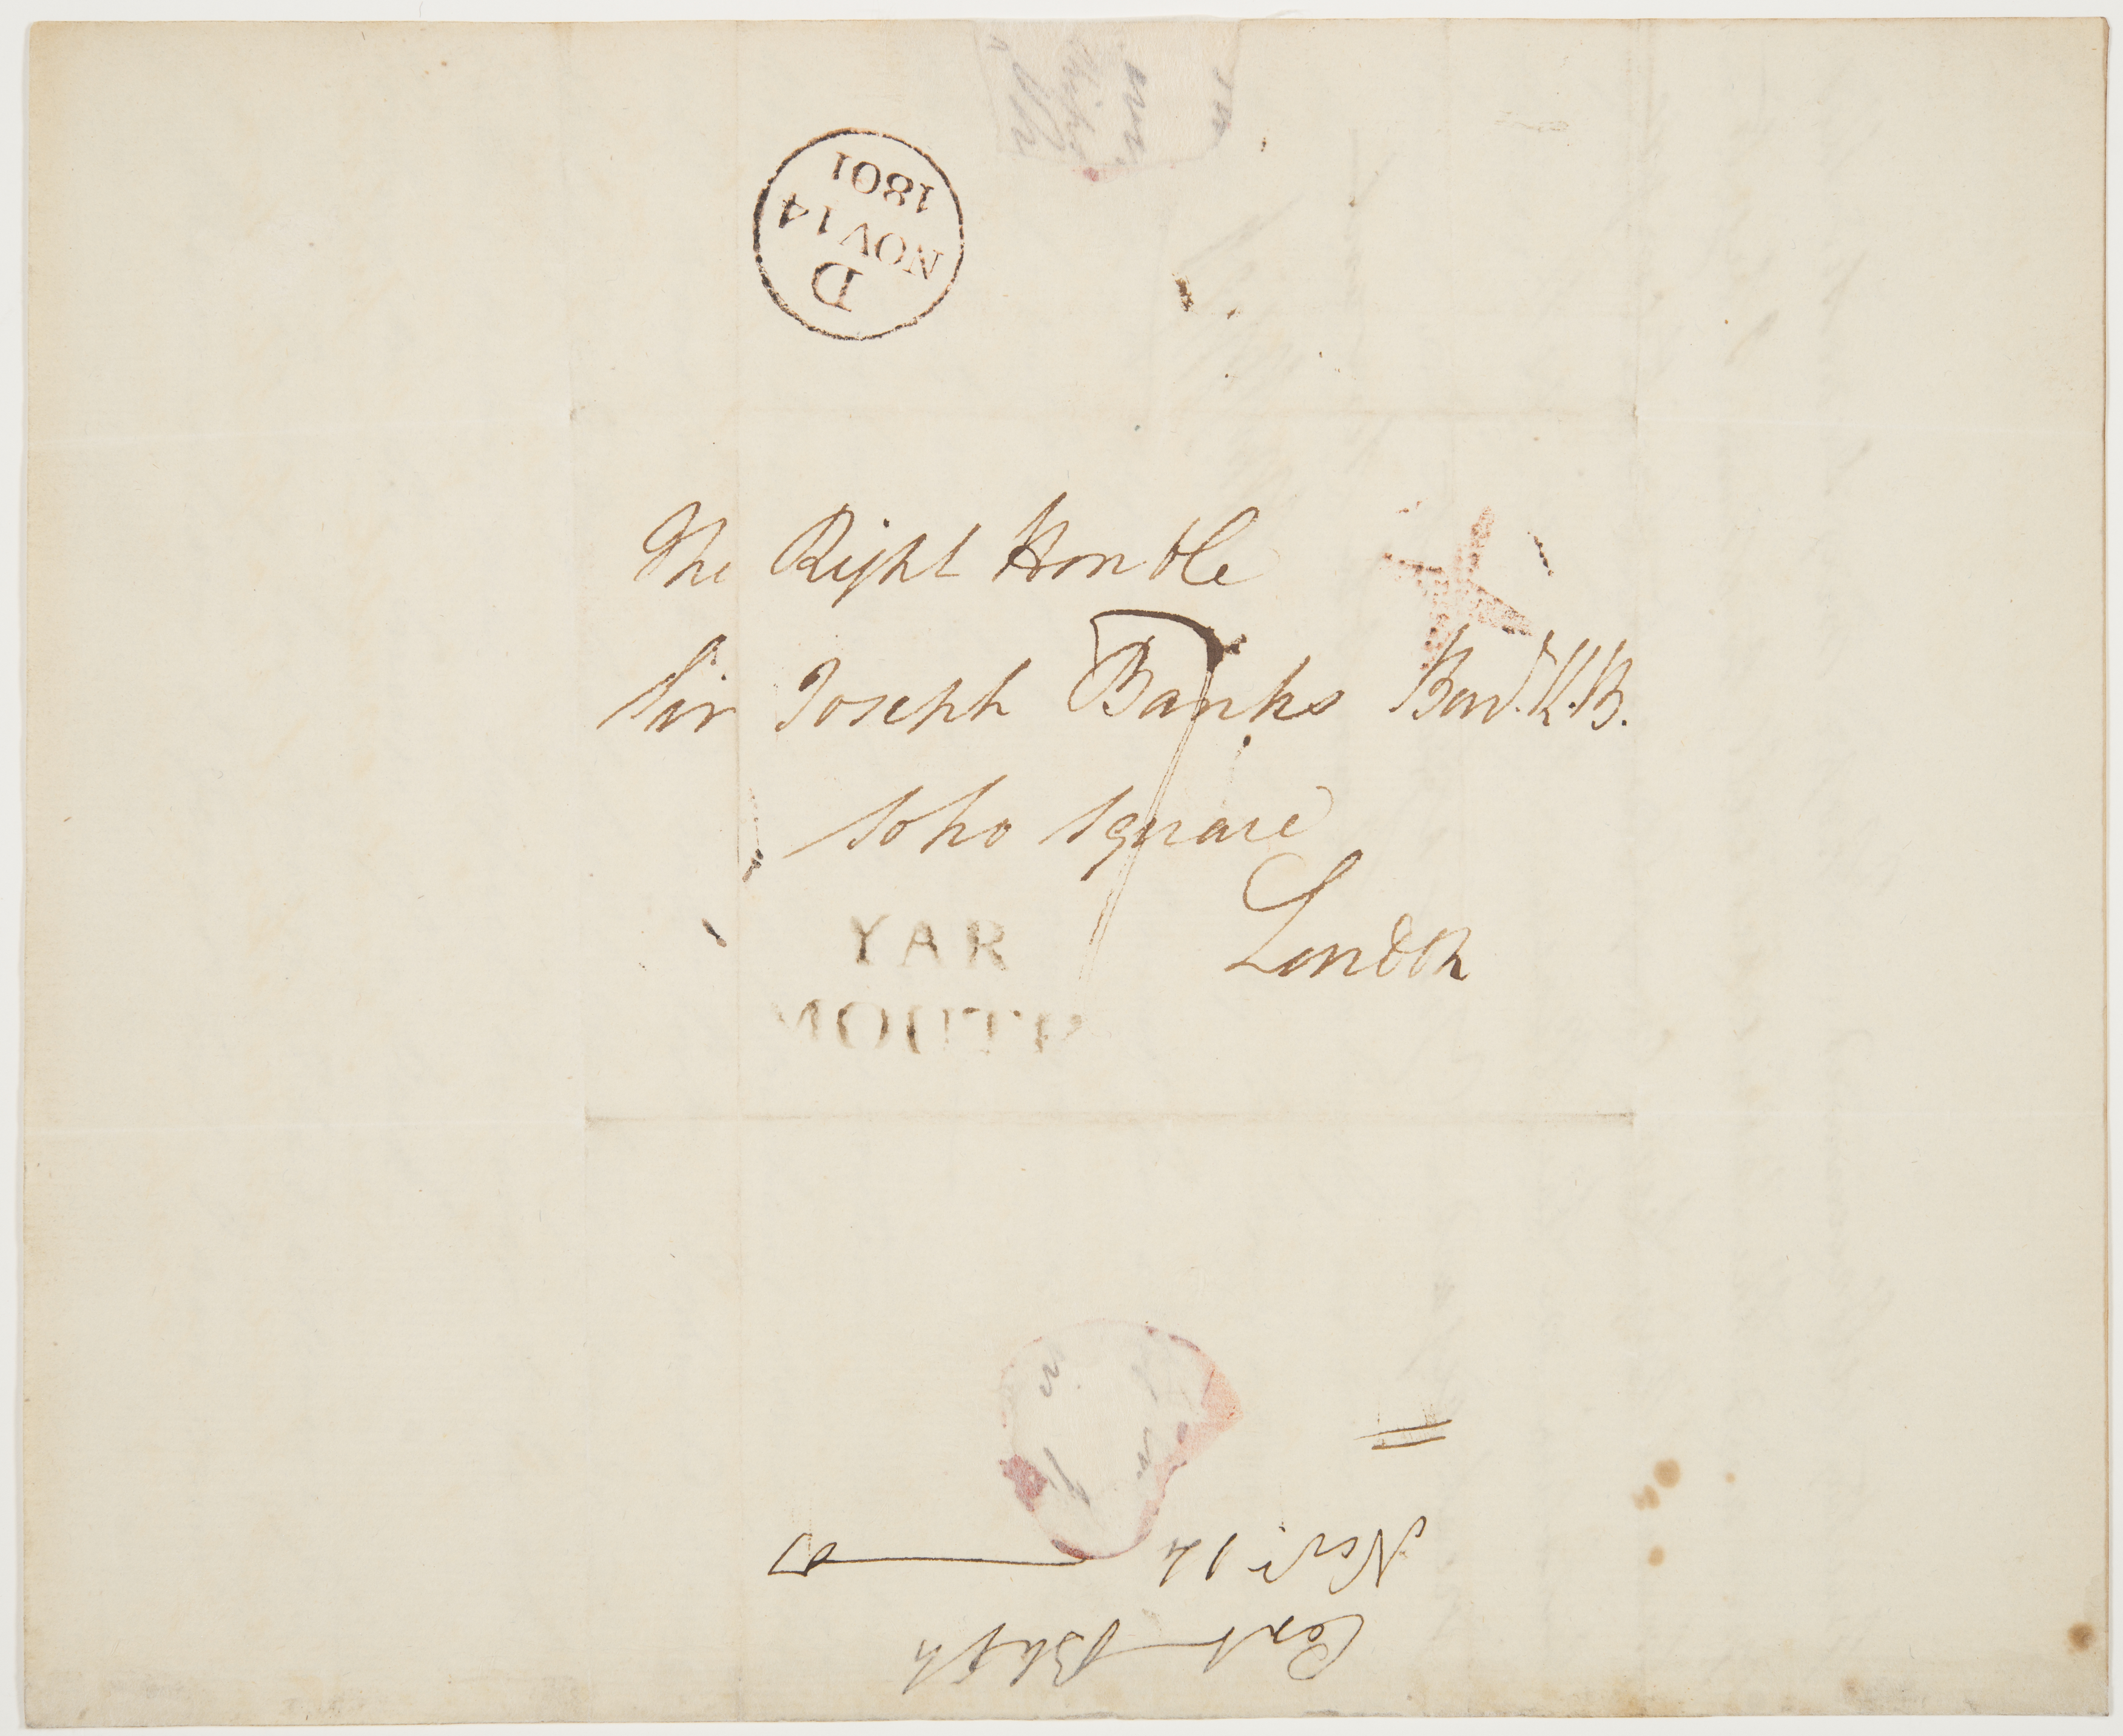 D
NOV 14
1801
The Right Honble
Sir Joseph Banks Bart. K.B.
Soho Square
London
YAR
MOUTH
Capt Bligh
Nov. 14